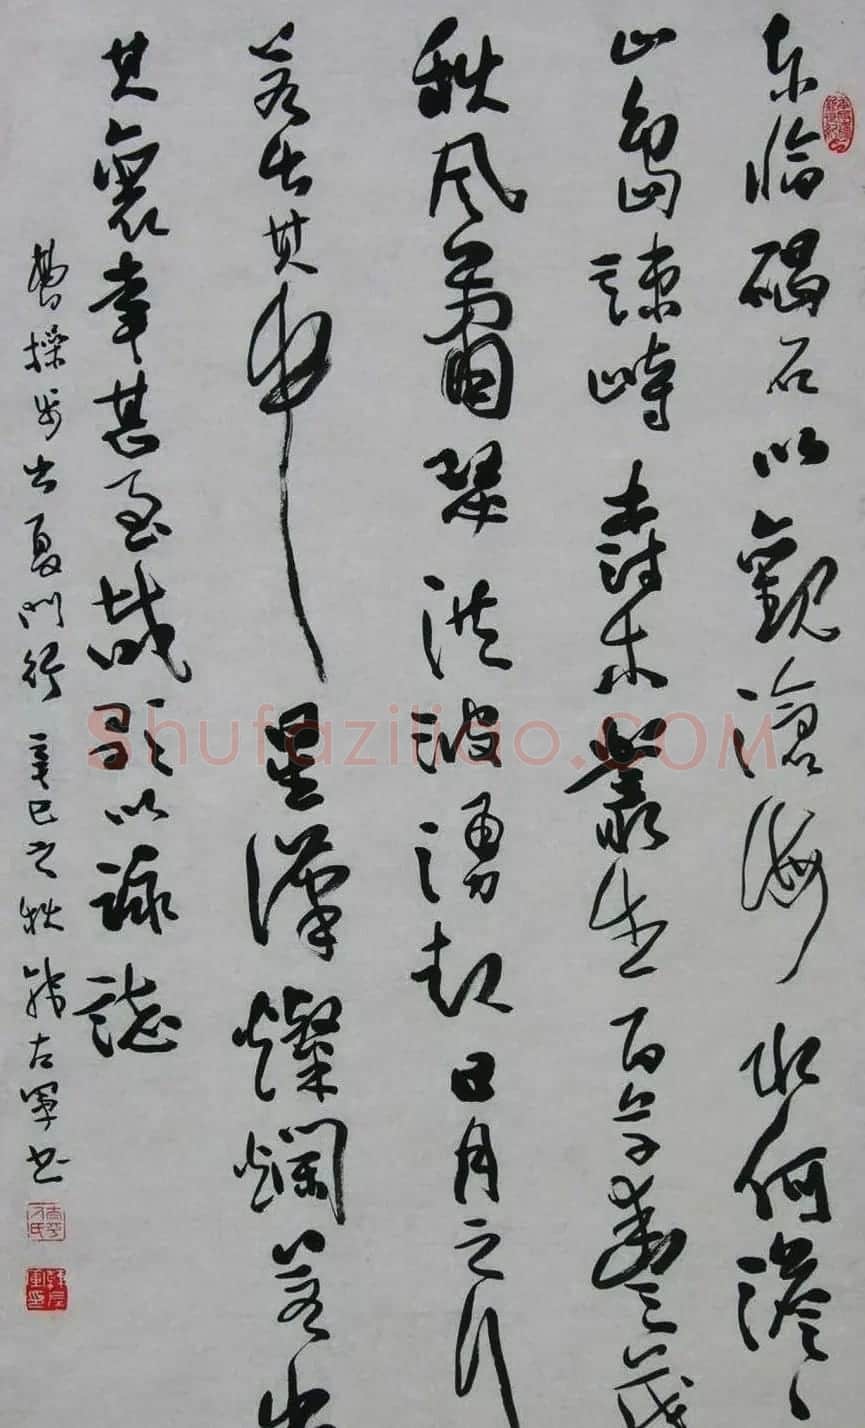 东临碣石以觀滄海水何澹〻
山島竦峙樹木叢生百草豐茂
秋風蕭瑟洪波湧起日月之行
若出其中星漢燦爛若出
其裏幸甚至哉歌以詠誌
曹操步出夏門行 辛巳之秋 左军书
Shufaziliao.COM